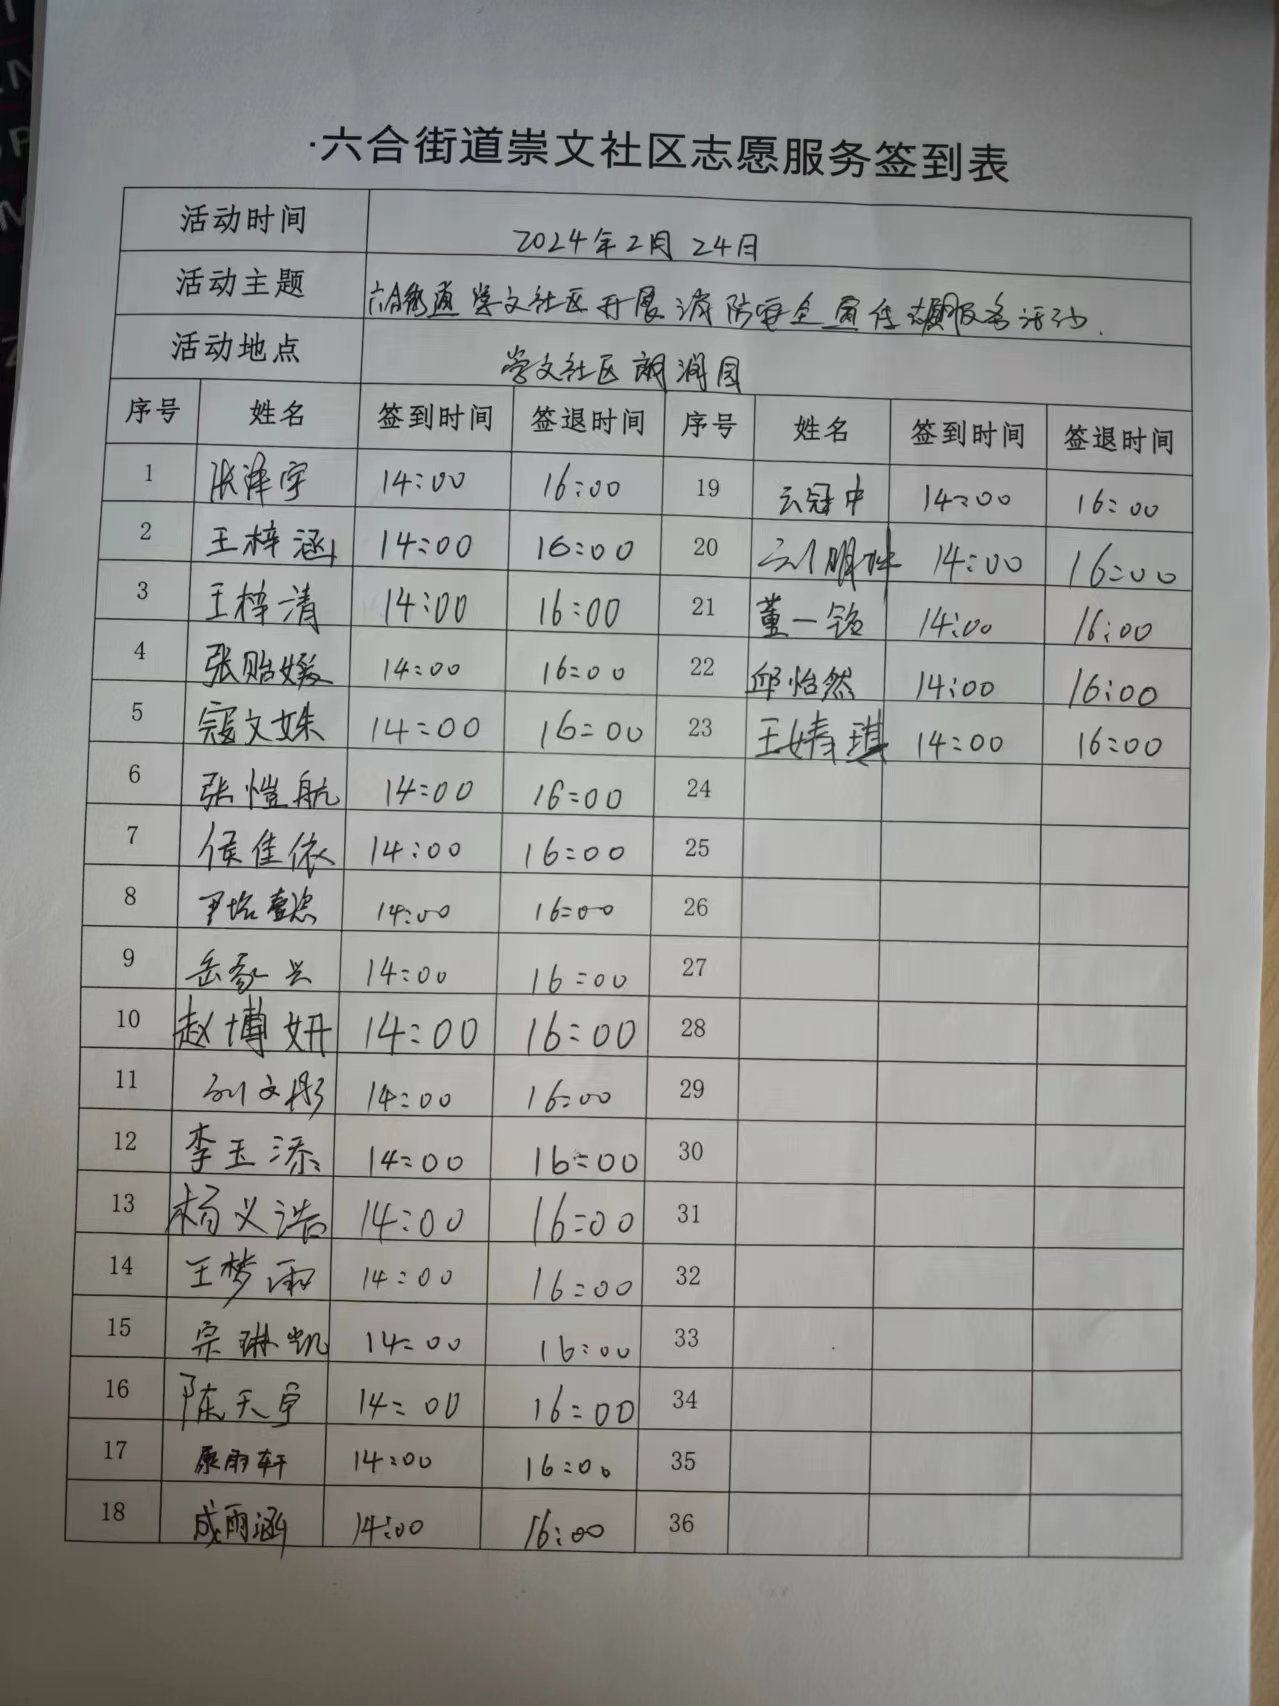 ·六合街道崇文社区志愿服务签到表
活动时间 2024年2月24日
活动主题 六合街道崇文社区开展消防安全宣传志愿服务活动.
活动地点 崇文社区朗润园
序号 姓名 签到时间 签退时间 序号 姓名 签到时间 签退时间
1 张泽宇 14:00 16:00 19 云冠中 14:00 16:00
2 王梓涵 14:00 16:00 20 刘明坤 14:00 16:00
3 王梓清 14:00 16:00 21 董一铭 14:00 16:00
4 张贻媛 14:00 16:00 22 邱怡然 14:00 16:00
5 寇文姝 14:00 16:00 23 王婧琪 14:00 16:00
6 张恺航 14:00 16:00 24
7 侯佳依 14:00 16:00 25
8 14:00 16:00 26
9 岳家兴 14:00 16:00 27
10 赵博妍 14:00 16:00 28
11 刘文彤 14:00 16:00 29
12 李玉添 14:00 16:00 30
13 杨义浩 14:00 16:00 31
14 王梦雨 14:00 16:00 32
15 宗琳凯 14:00 16:00 33
16 陈天宇 14:00 16:00 34
17 康雨轩 14:00 16:00 35
18 成雨涵 14:00 16:00 36